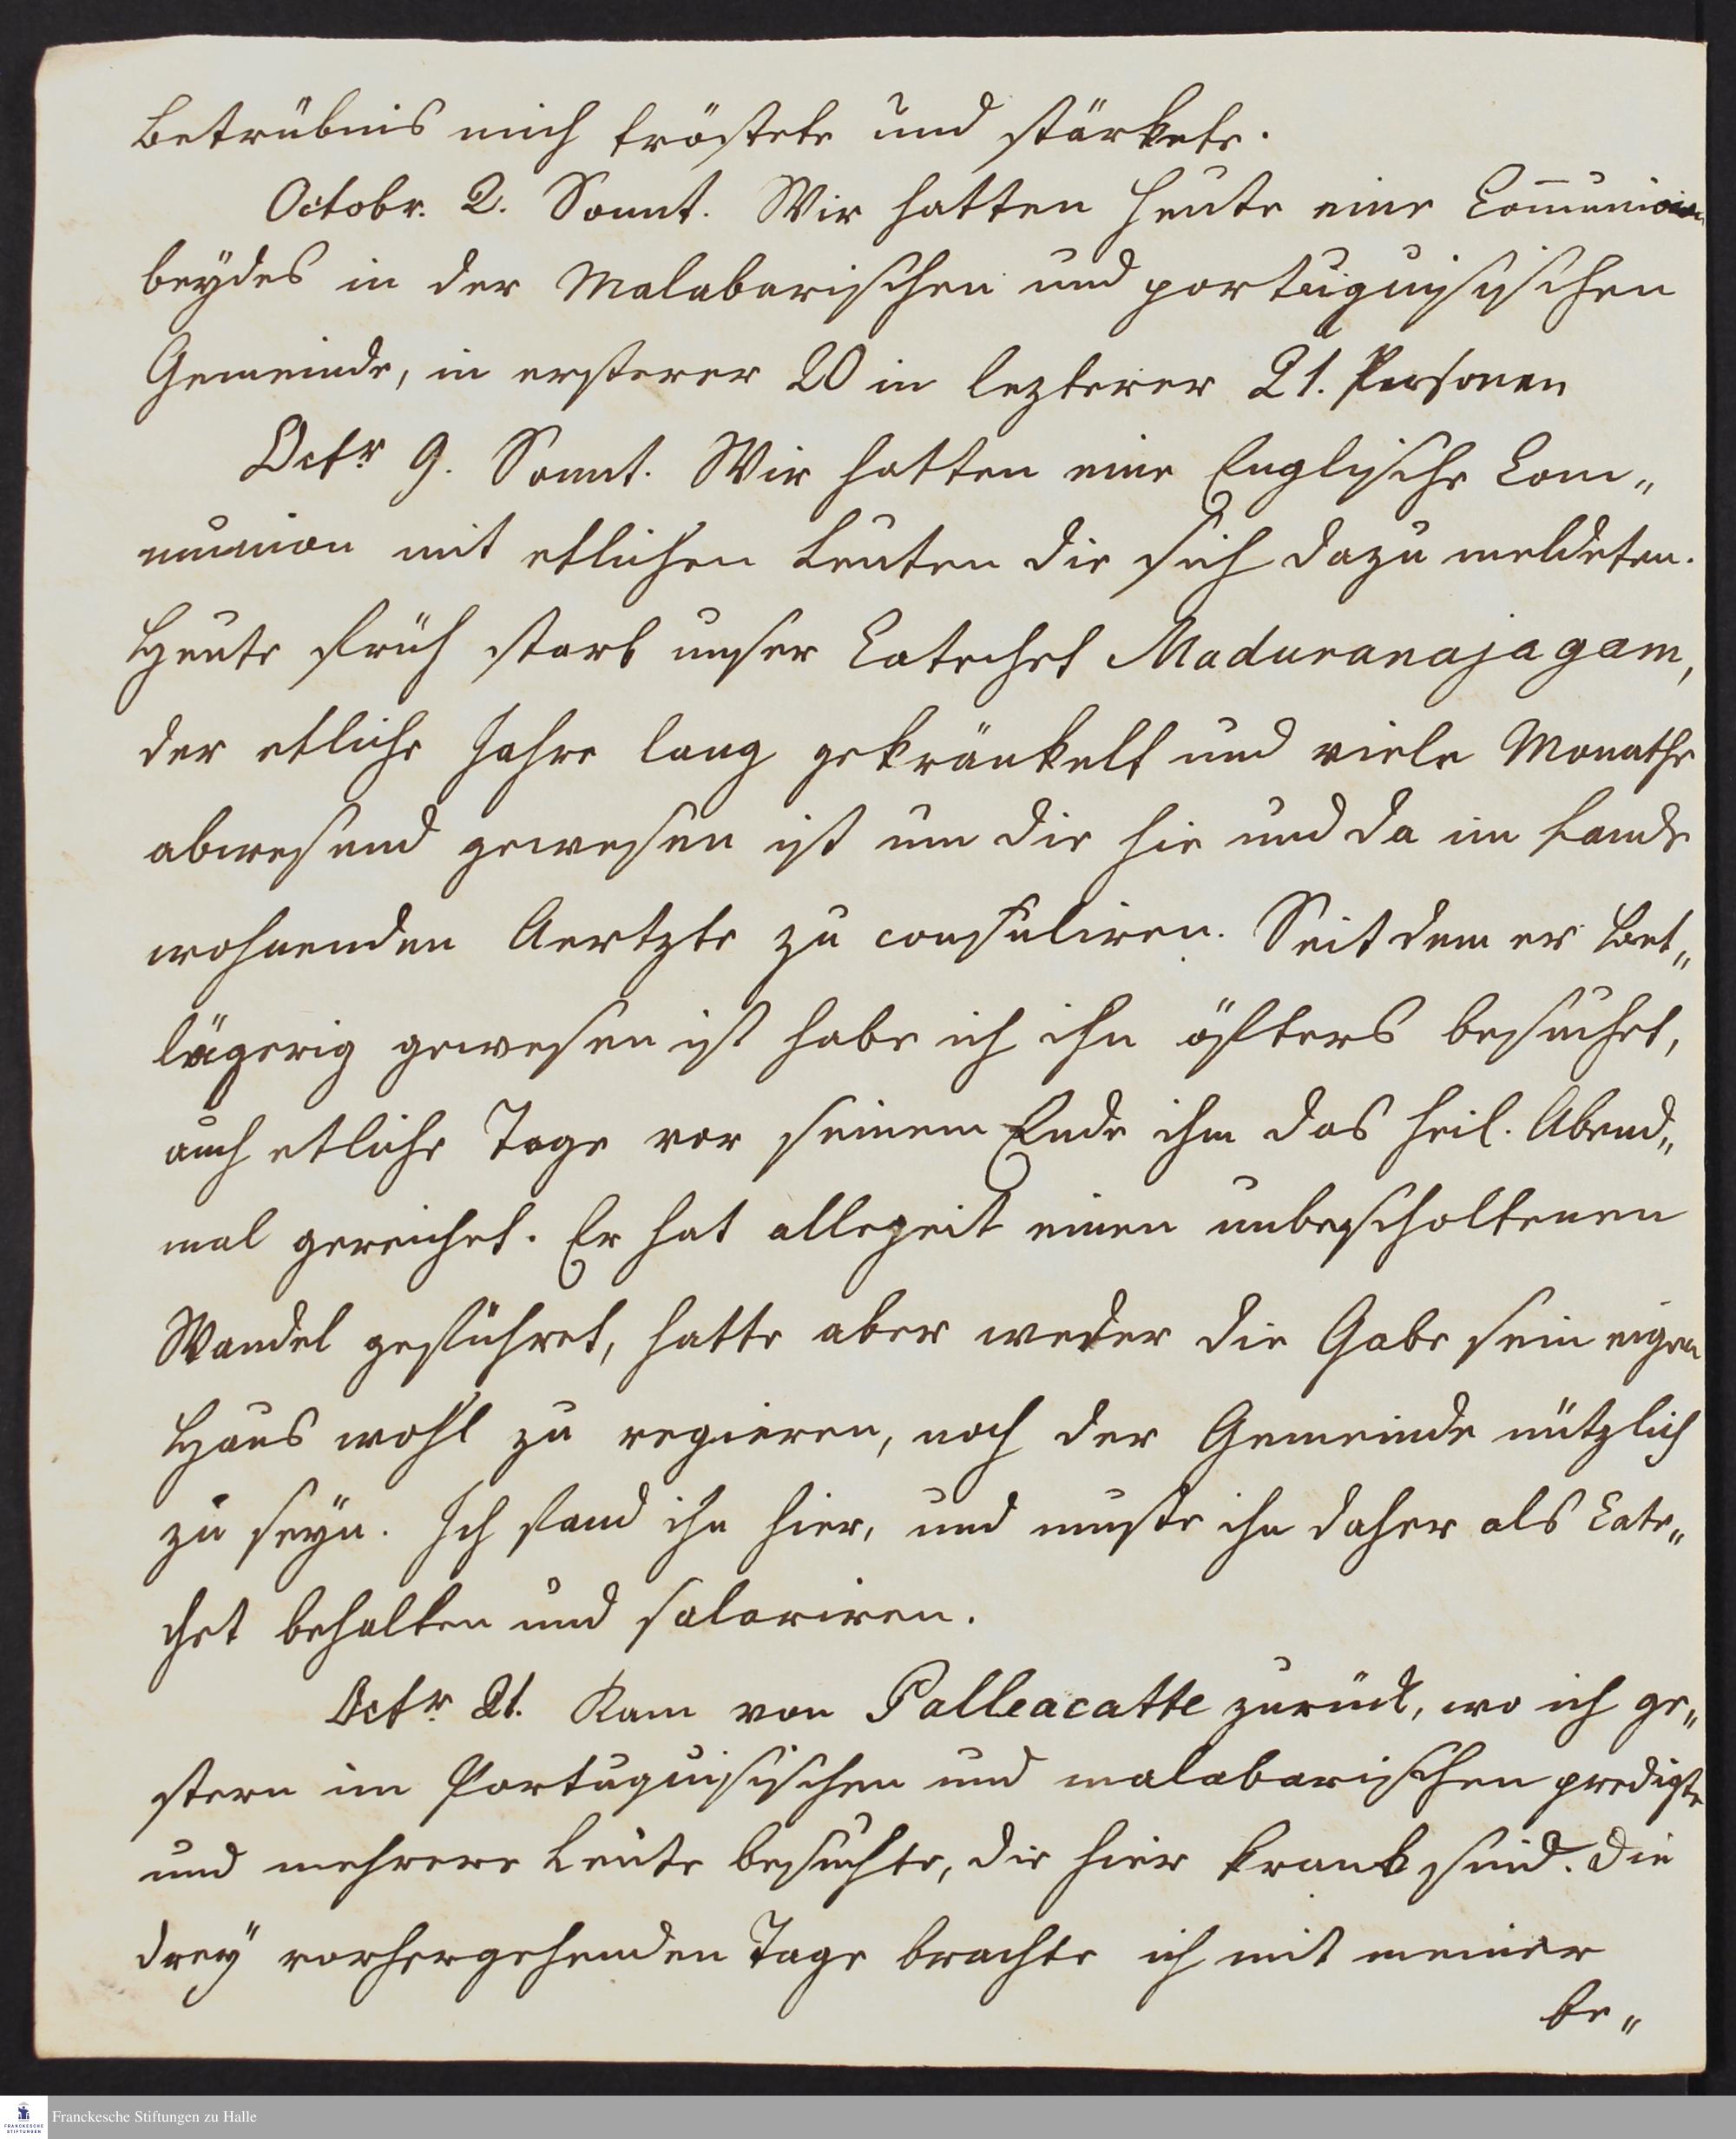 Betrübnis mich tröstete und stärkete.
Octobr. 2. Sonnt. Wir hatten heute eine Com̅union
beydes in der Malabarischen und portuguisischen
Gemeinde, in ersterer 20 in lezterer 21. Personen
Octr 9. Sonnt. Wir hatten eine Englische Com„
munion mit etlichen Leuten die sich dazu meldeten.
Heute früh starb unser Catechet Maduranajagam,
der etliche Jahre lang gekränkelt und viele Monathe
abwesend gewesen ist um die hie und da im Lande
wohnenden Aertzte zu consuliren. Seit dem er bet„
lägerig gewesen ist habe ich ihn öfters besuchet,
auch etliche Tage vor seinem Ende ihm das heil. Abend„
mal gereichet. Er hat allezeit einen unbescholtenen
Wandel geführet, hatte aber weder die Gabe sein eigen
Haus wohl zu regieren, noch der Gemeinde nützlich
zu seyn. Ich fand ihn hier, und muste ihn daher als Cate„
chet behalten und salariren.
Octr 21. Kam von Palleacatte zurück, wo ich ge„
stern im Portuguisischen und malabarischen predigte
und mehrere Leute besuchte, die hier krank sind. Die
drey vorhergehenden Tage brachte ich mit meiner
be„
Franckesche Stiftungen zu Halle
FRANCKESCHE
STIFTUNGEN